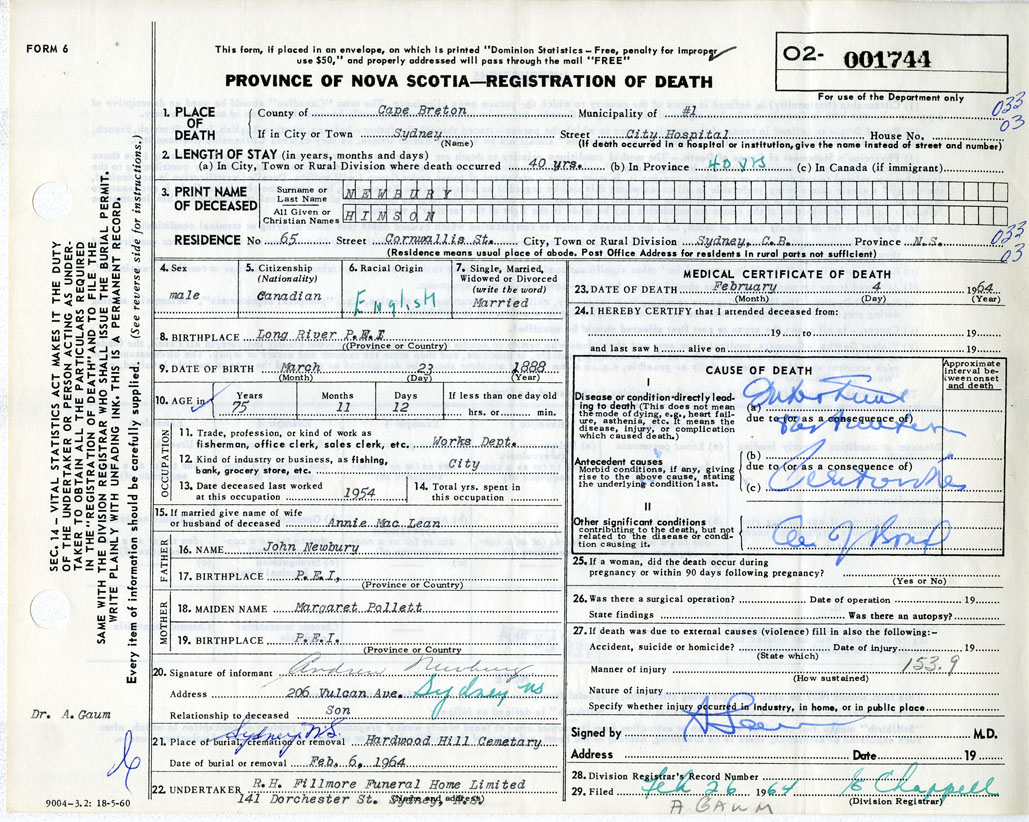 FORM 6
This form, if placed in an envelope, on which is printed "Dominion Statistics – Free, penalty for improper
use $50," and properly addressed will pass through the mail "FREE"
PROVINCE OF NOVA SCOTIA—REGISTRATION OF DEATH
O2- 001744
For use of the Department only
033
03
1. PLACE OF DEATH
County of Cape Breton Municipality of #1
If in City or Town Sydney (Name) Street City Hospital House No.
(If death occurred in a hospital or institution, give the name instead of street and number)
2. LENGTH OF STAY (in years, months and days)
(a) In City, Town or Rural Division where death occurred 40 yrs. (b) In Province 40 yrs (c) In Canada (if immigrant)
3. PRINT NAME OF DECEASED
Surname or Last Name NEWBURY
All Given or Christian Names HINSON
RESIDENCE No 65 Street Cornwallis St. City, Town or Rural Division Sydney, C.B. Province N.S.
(Residence means usual place of abode. Post Office Address for residents in rural parts not sufficient)
033
03
4. Sex
male
5. Citizenship (Nationality)
Canadian
6. Racial Origin
English
7. Single, Married, Widowed or Divorced (write the word)
Married
8. BIRTHPLACE Long River P.E.I
(Province or Country)
9. DATE OF BIRTH March 23 1888
(Month) (Day) (Year)
10. AGE in Years 75 Months 11 Days 12 If less than one day old hrs. or min.
OCCUPATION
11. Trade, profession, or kind of work as
fisherman, office clerk, sales clerk, etc. Works Dept.
12. Kind of industry or business, as fishing,
bank, grocery store, etc. City
13. Date deceased last worked
at this occupation 1954
14. Total yrs. spent in
this occupation
15. If married give name of wife
or husband of deceased Annie Mac Lean
FATHER
16. NAME John Newbury
17. BIRTHPLACE P.E.I,
(Province or Country)
MOTHER
18. MAIDEN NAME Margaret Pollett
19. BIRTHPLACE P.E.I.
(Province or Country
20. Signature of informant Andrew Newbury
Address 206 Vulcan Ave. Sydney NS
Relationship to deceased Son
21. Place of burial, cremation or removal Hardwood Hill Cemetary
Sydney N.S.
Date of burial or removal Feb. 6, 1964
22. UNDERTAKER R.H. Fillmore Funeral Home Limited
141 Dorchester St. Sydney, N.S.
(Name and address)
MEDICAL CERTIFICATE OF DEATH
23. DATE OF DEATH February 4 1964
(Month) (Day) (Year)
24. I HEREBY CERTIFY that I attended deceased from:
19 to 19
and last saw h alive on 19
CAUSE OF DEATH
Approximate interval between onset and death
I
Disease or condition directly leading to death (This does not mean
the mode of dying, e.g., heart failure, asthenia, etc. It means the
disease, injury, or complication which caused death.)
(a)
due to (or as a consequence of)
Antecedent causes
Morbid conditions, if any, giving
rise to the above cause, stating
the underlying condition last.
(b)
due to (or as a consequence of)
(c)
II
Other significant conditions
contributing to the death, but not
related to the disease or condition causing it.
25. If a woman, did the death occur during
pregnancy or within 90 days following pregnancy?
(Yes or No)
26. Was there a surgical operation? Date of operation 19
State findings Was there an autopsy?
27. If death was due to external causes (violence) fill in also the following:–
Accident, suicide or homicide? Date of injury 19
(State which)
153.9
Manner of injury
(How sustained)
Nature of injury
Specify whether injury occurred in industry, in home, or in public place
Signed by M.D.
Address Date 19
28. Division Registrar's Record Number
29. Filed Feb 26 1964 E Chappell
(Division Registrar)
A GAUM
SEC. 14 – VITAL STATISTICS ACT MAKES IT THE DUTY
OF THE UNDERTAKER OR PERSON ACTING AS UNDER-
TAKER TO OBTAIN ALL THE PARTICULARS REQUIRED
IN THE "REGISTRATION OF DEATH" AND TO FILE THE
SAME WITH THE DIVISION REGISTRAR WHO SHALL ISSUE THE BURIAL PERMIT.
WRITE PLAINLY WITH UNFADING INK. THIS IS A PERMANENT RECORD.
Every item of information should be carefully supplied. (See reverse side for instructions.)
Dr. A. Gaum
9004–3.2: 18-5-60